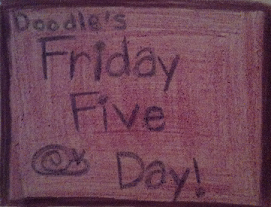 Doodle's
Friday
Five
Day!